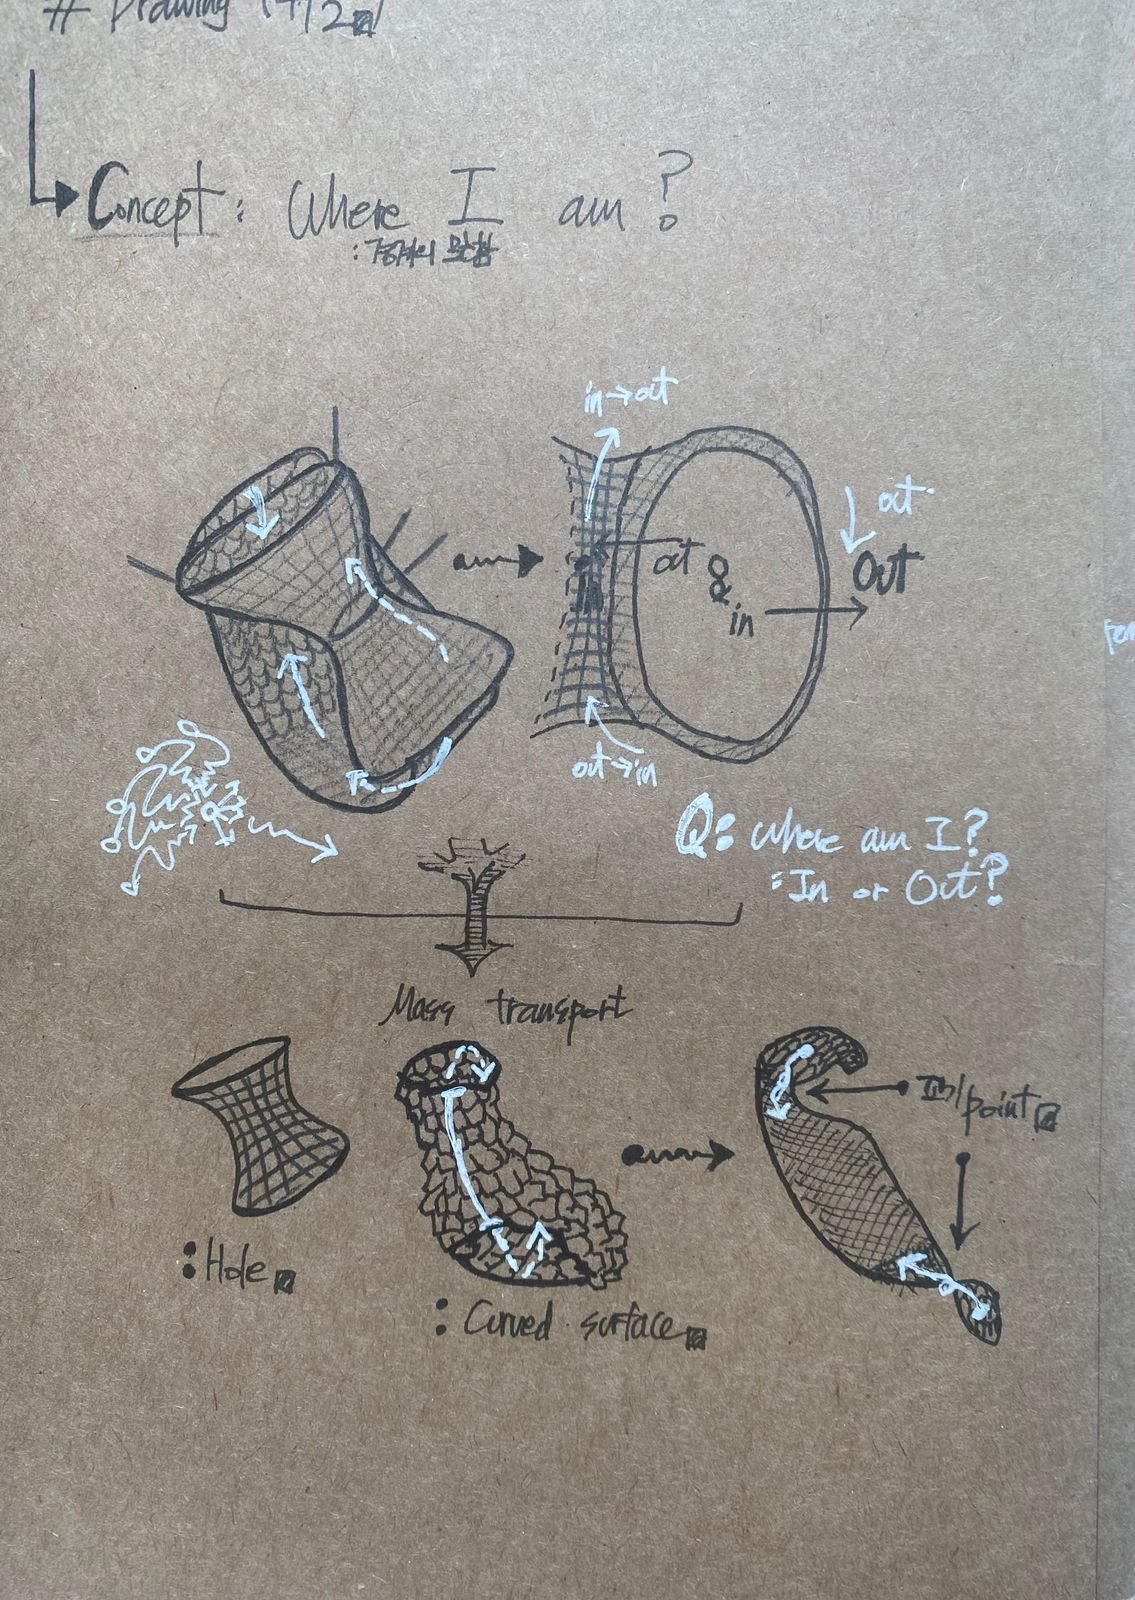 # Drawing
Concept: Where I am?
: 경계의 모호함
in→out
out
out
Out
in
out→in
Q: Where am I?
: In or Out?
Mass transport
point
: Hole
: Curved surface